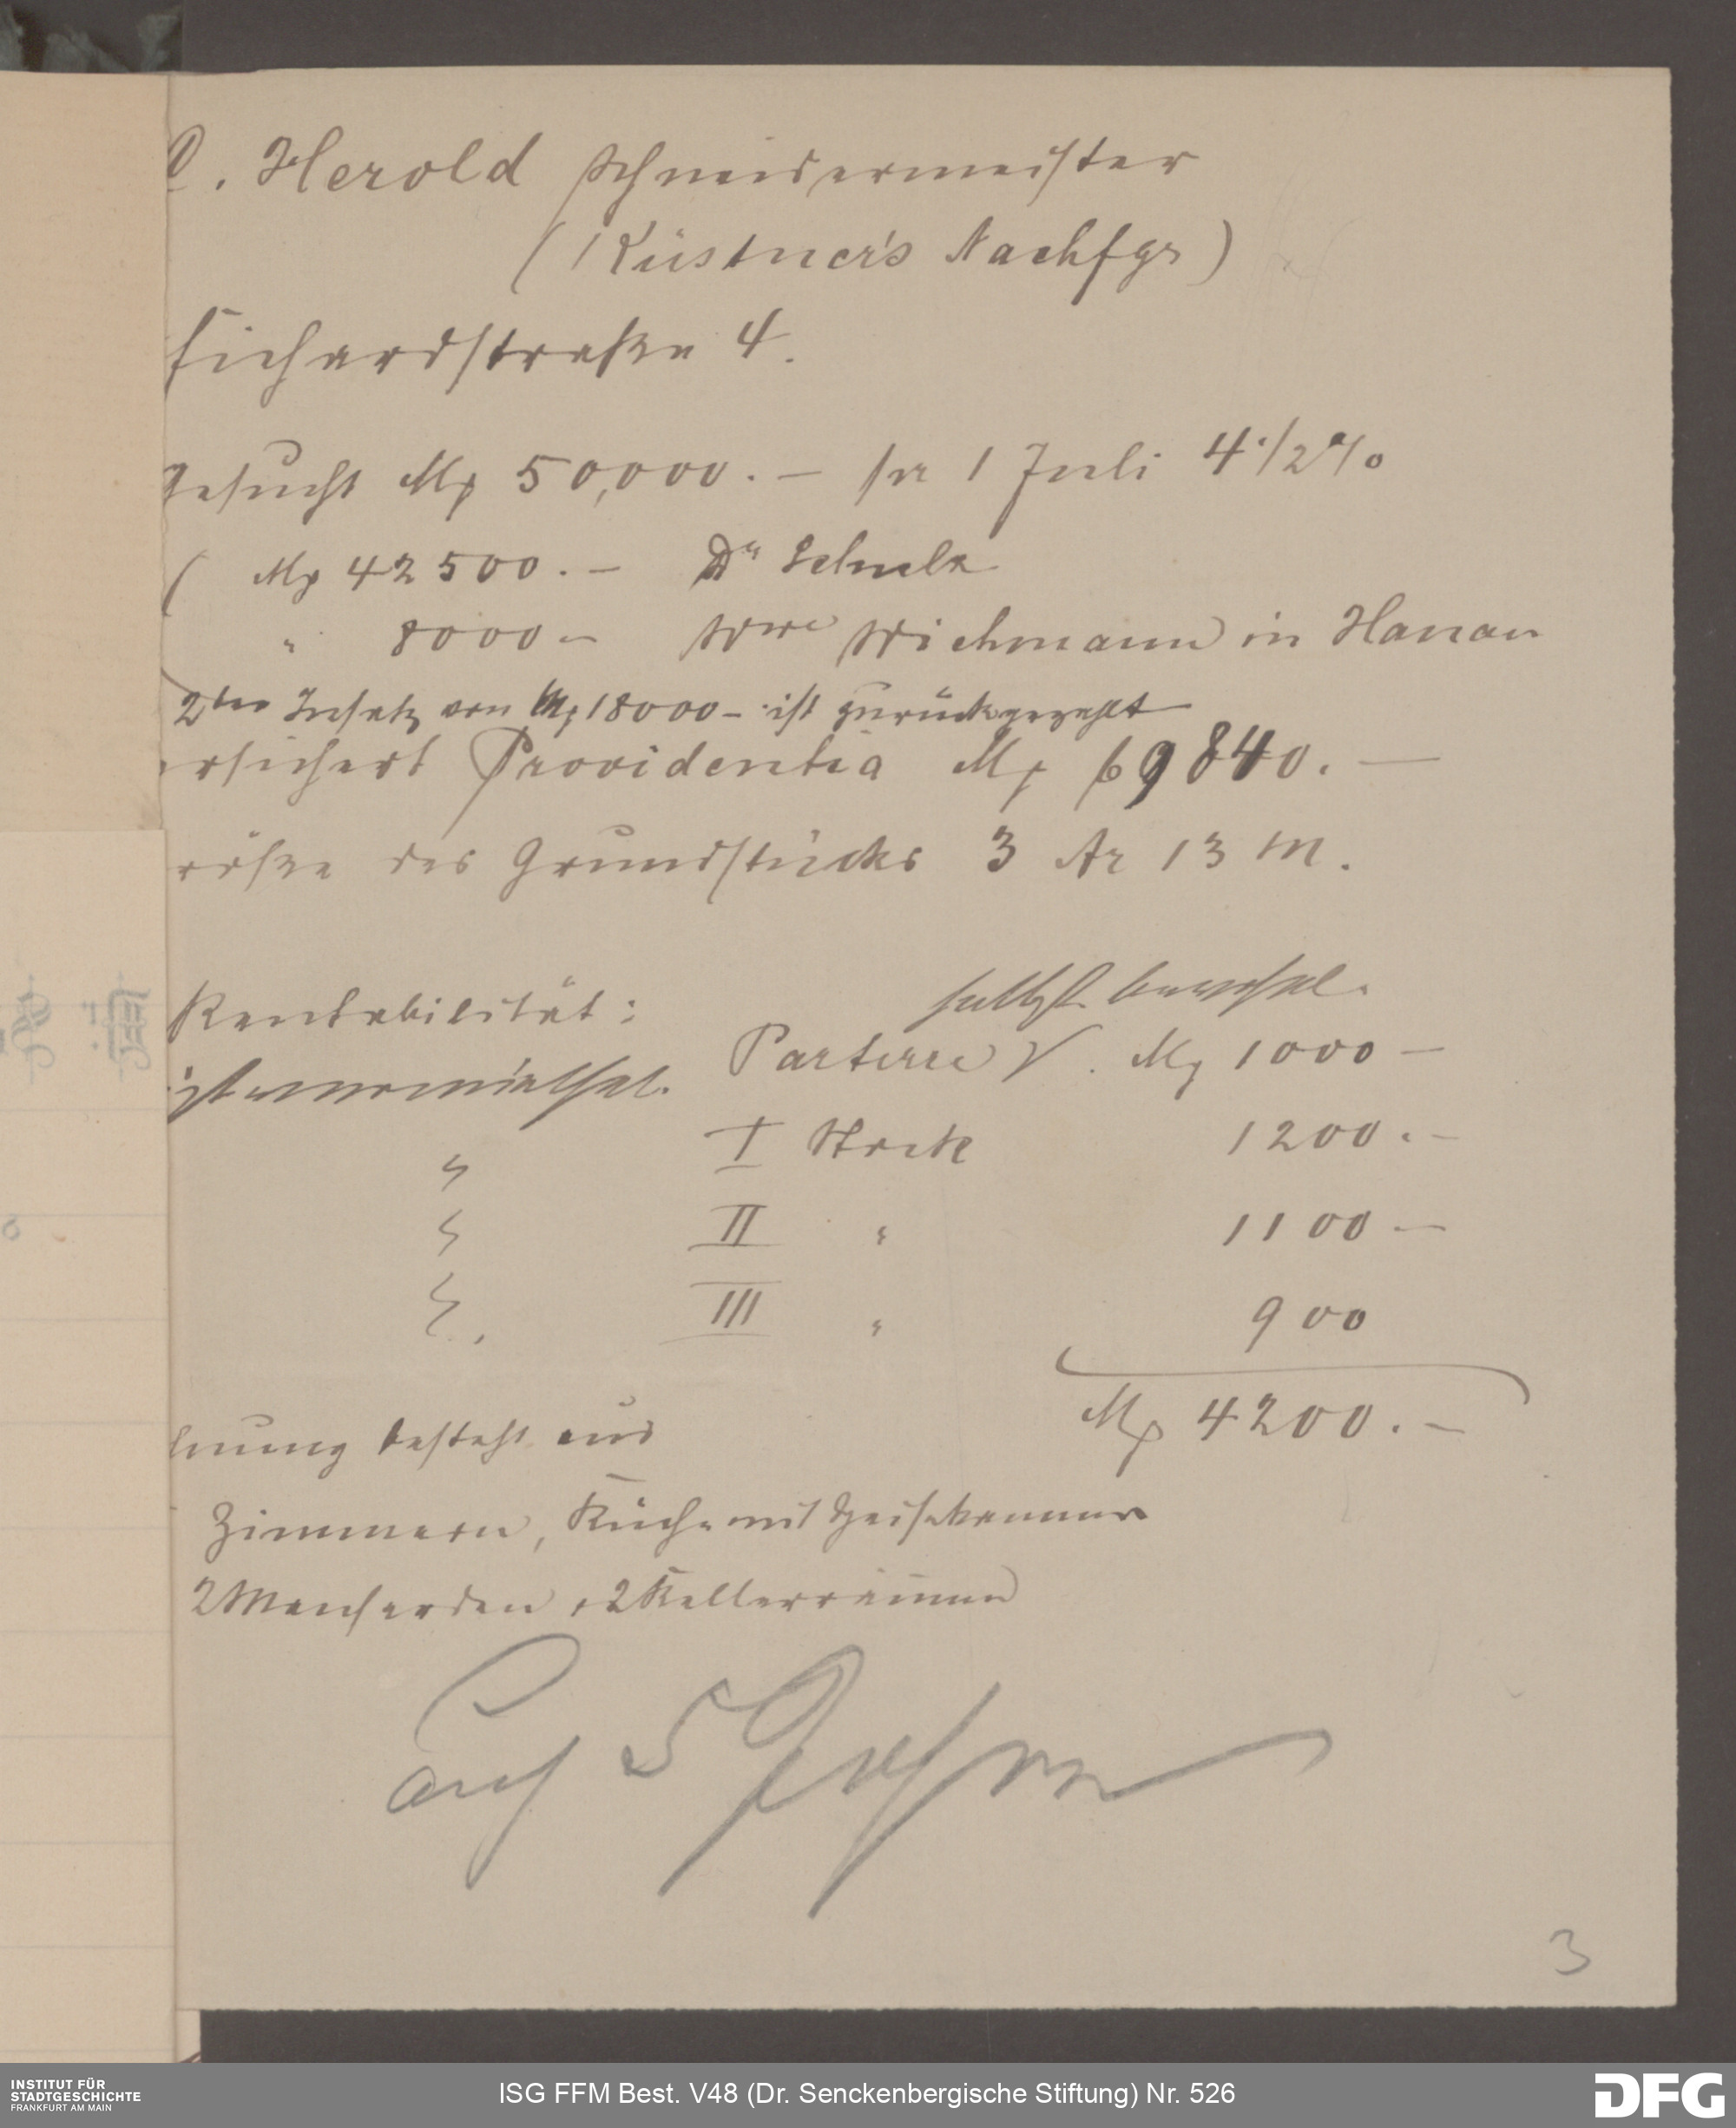 . Herold Schneidermeister
(Küstner's Nachfgr)
Fichardstraße 4.
Gesucht Mk 50,000.— pr 1 Juli 4 1/2 %
( Mk 42500.— Dr Schulz
" 8000— Wwe Wichmann in Hanau
2ter Insatz von Mk 18000— ist zurückgezahlt
ersichert Providentia Mk 69840.—
röße des Grundstücks 3 Ar 13 M.
selbst bewohnt.
Rentabilität: Parterre Mk 1000—
ist vermiethet.
" I Stock 1200.—
" II " 1100—
" III " 900
Mk 4200.—
hnung besteht aus
Zimmern, Küche mit Speisekammer
2 Mansarden, 2 Kellerräumen
auf 5 Jahre
3
INSTITUT FÜR
STADTGESCHICHTE
FRANKFURT AM MAIN
ISG FFM Best. V48 (Dr. Senckenbergische Stiftung) Nr. 526
DFG